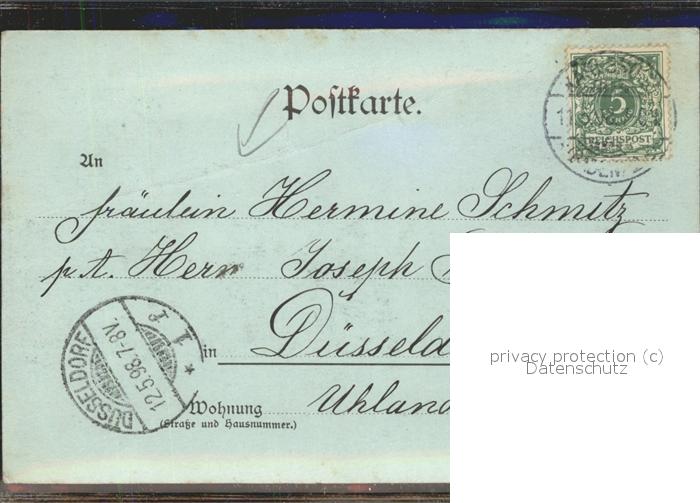 Postkarte.
5
REICHSPOST
An
fräulein Hermine Schmitz
p. A. Herrn Joseph
in Düsseld
Wohnung Uhland
(Straße und Hausnummer.)
DÜSSELDORF
12.5.98.7-8V.
privacy protection (c)
Datenschutz